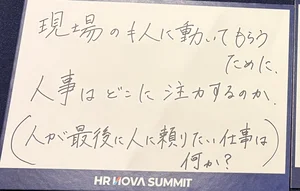 現場の人に動いてもらう
ために、
人事はどこに注力するのか。
(人が最後に人に頼りたい仕事は
何か?)
HR NOVA SUMMIT